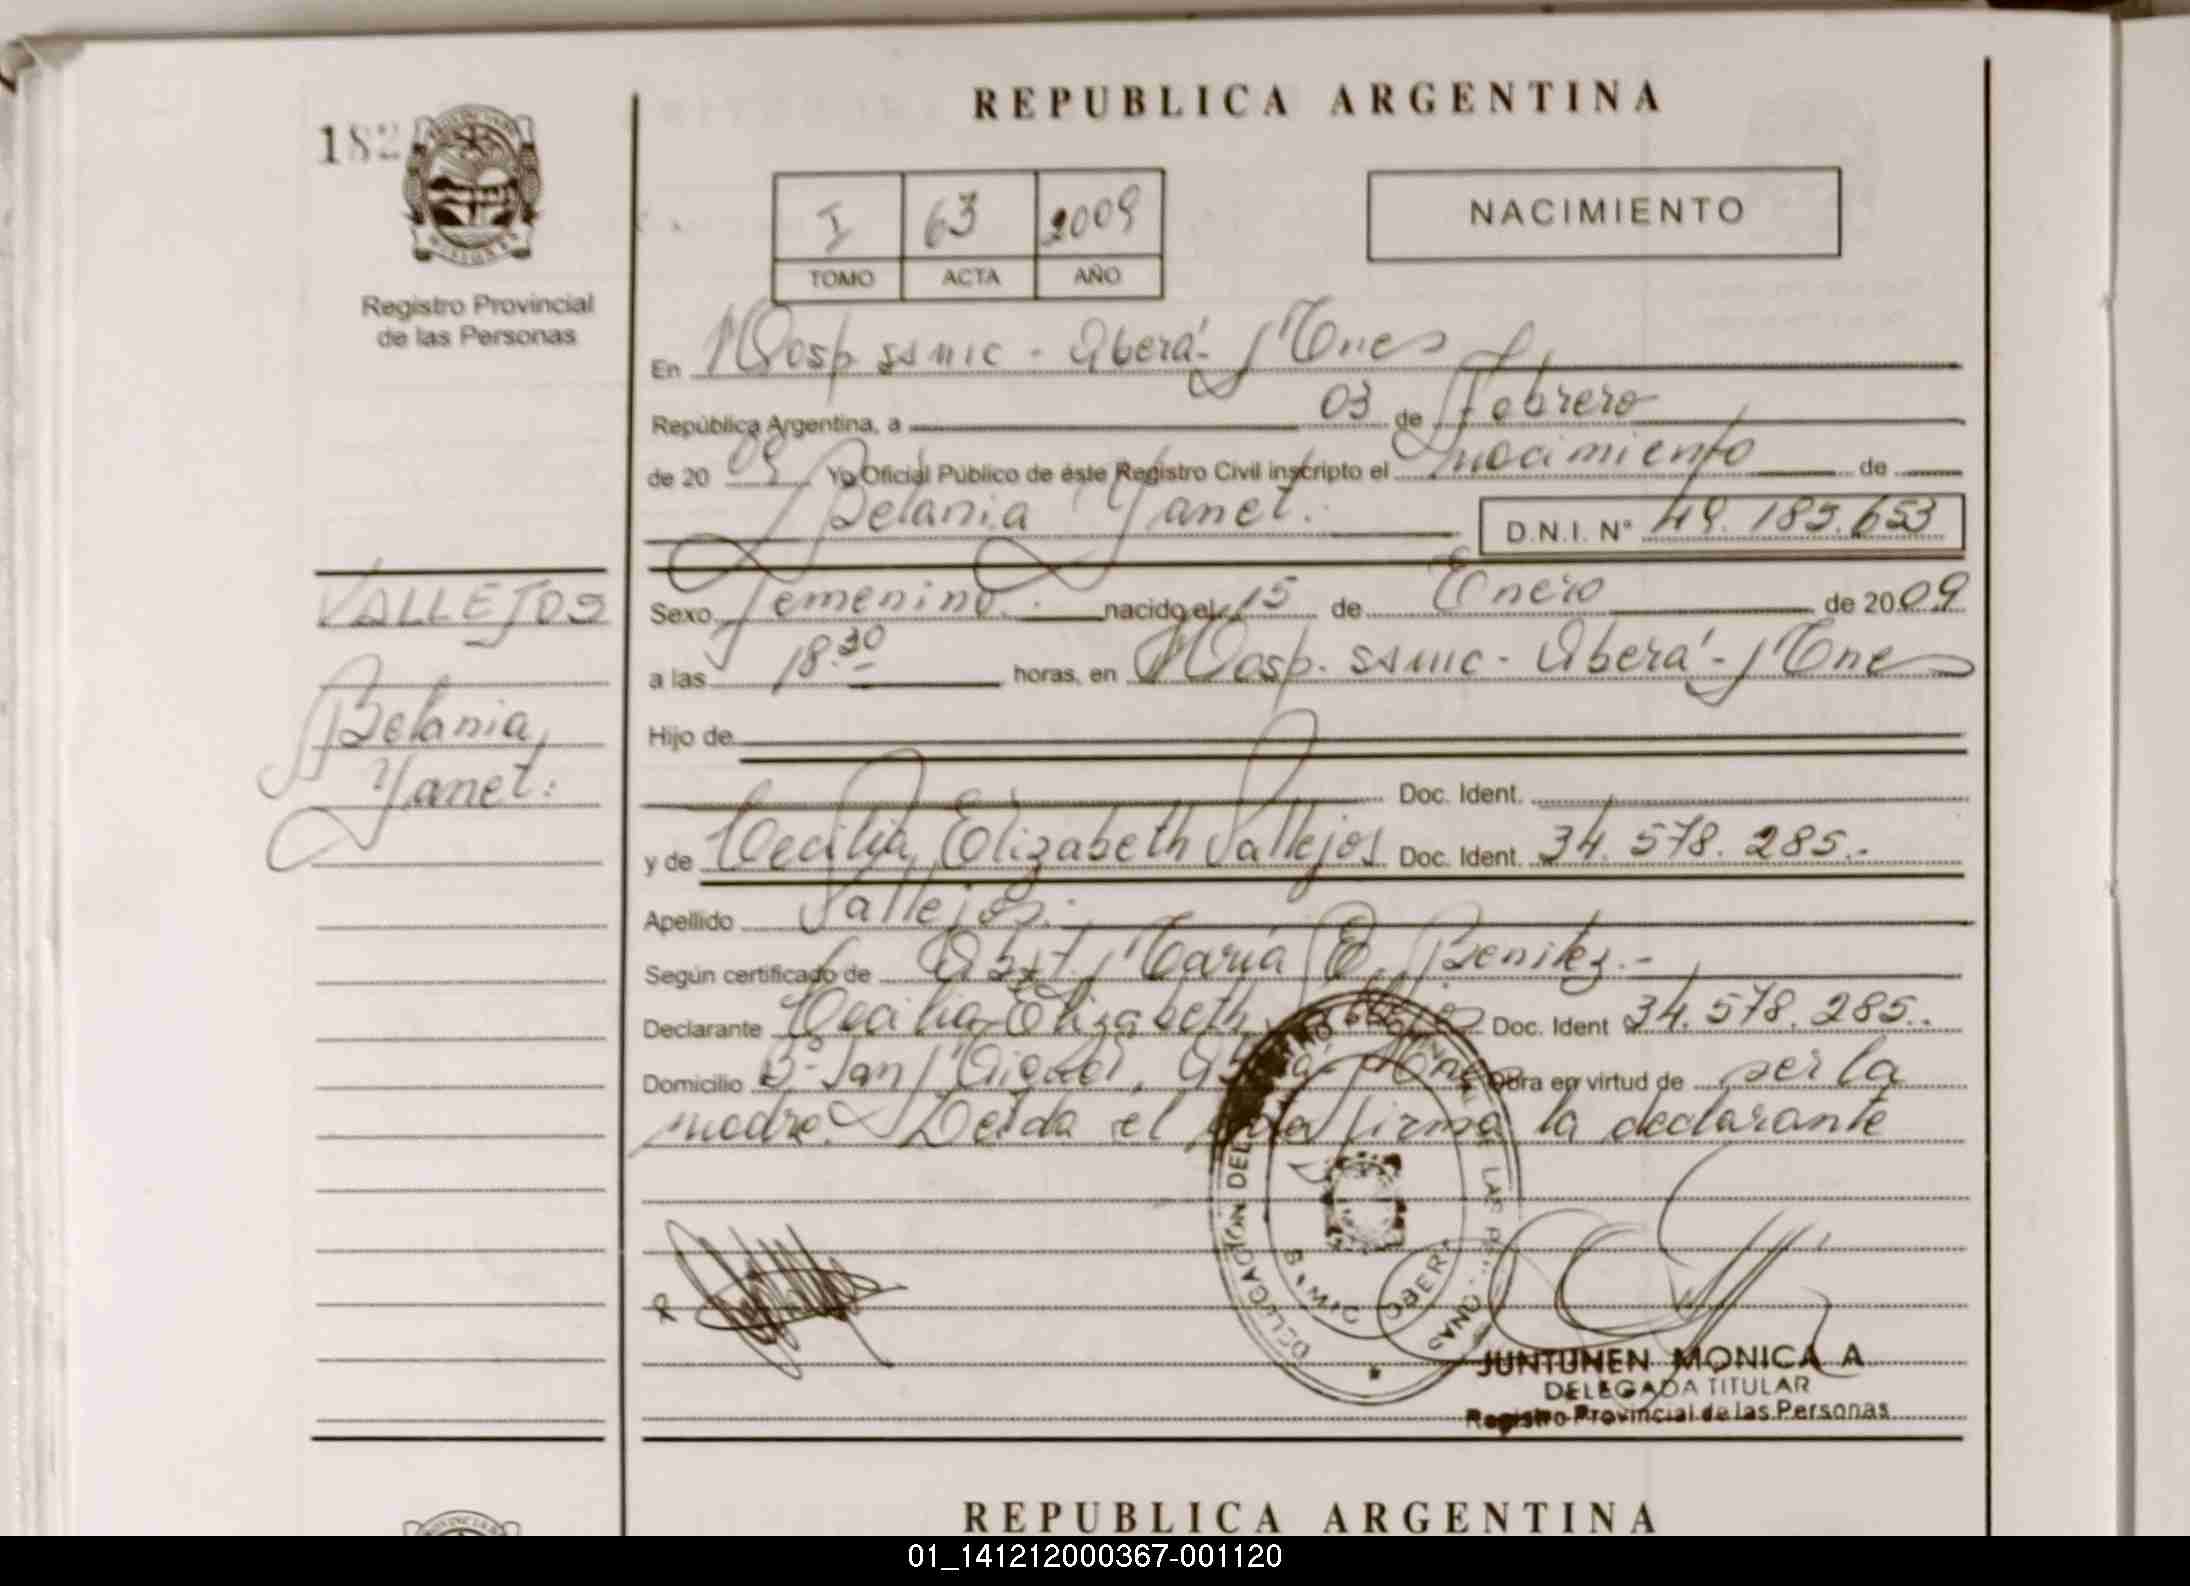 REPUBLICA ARGENTINA
182
I 63 2009
TOMO ACTA AÑO
NACIMIENTO
Registro Provincial
de las Personas
En Hosp SSMIC - Oberá - Mnes
República Argentina, a 03 de Febrero
de 20 09 Yo Oficial Público de éste Registro Civil inscripto el nacimiento de
Betania Yanet. D.N.I. N° 49.185.653
VALLEJOS
Betania
Yanet.
Sexo femenino. nacido el 15 de Enero de 2009
a las 18.30 horas, en Hosp. SSMIC - Oberá - Mnes
Hijo de
Doc. Ident.
y de Cecilia Elizabeth Vallejos Doc. Ident. 34.578.285.-
Apellido Vallejos.
Según certificado de Obst. María E. Benitez.-
Declarante Cecilia Elizabeth Vallejos Doc. Ident 34.578.285.
Domicilio B° San Miguel, Oberá - Mnes Obra en virtud de ser la
madre. Leida el acta firma la declarante
DELEGACIÓN DEL REGISTRO PROVINCIAL DE LAS PERSONAS
OBERÁ
JUNTUNEN MONICA A
DELEGADA TITULAR
Registro Provincial de las Personas
REPUBLICA ARGENTINA
01_141212000367-001120